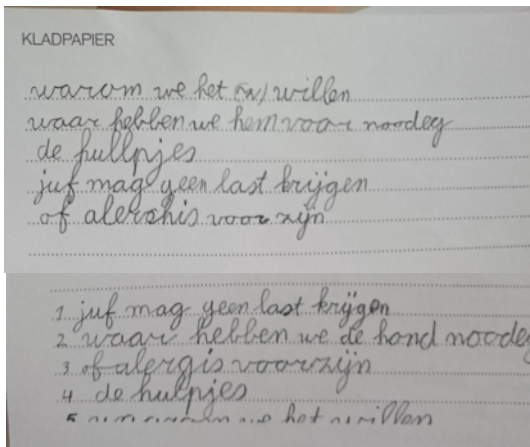 KLADPAPIER
warom we het willen
waar hebben we hem voor noodeg
de hullpjes
juf mag geen last krijgen
of alershis voor zijn
1 juf mag geen last krijgen
2 waar hebben we de hond noodeg
3 of alergis voor zijn
4 de hulpjes
5 we het willen